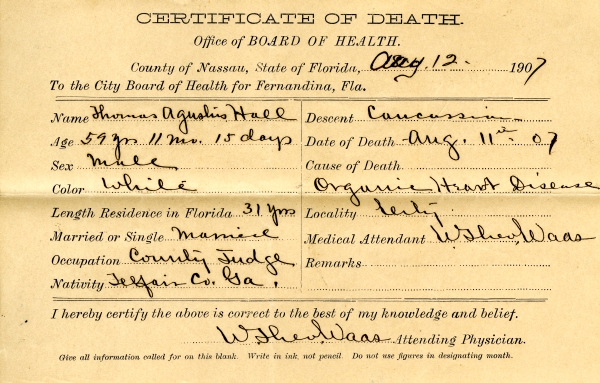 CERTIFICATE OF DEATH.
Office of BOARD OF HEALTH.
County of Nassau, State of Florida, Aug. 12. 1907
To the City Board of Health for Fernandina, Fla.
Name Thomas Agustus Hall
Age 59 yrs 11 mo. 15 days
Sex Male
Color White
Length Residence in Florida 31 yrs
Married or Single Married
Occupation County Judge
Nativity Telfair Co. Ga.
Descent Caucassian
Date of Death Aug. 11th 07
Cause of Death
Organic Heart Disease
Locality City
Medical Attendant W. Theo. Waas
Remarks
I hereby certify the above is correct to the best of my knowledge and belief.
W. Theo. Waas Attending Physician.
Give all information called for on this blank. Write in ink, not pencil. Do not use figures in designating month.